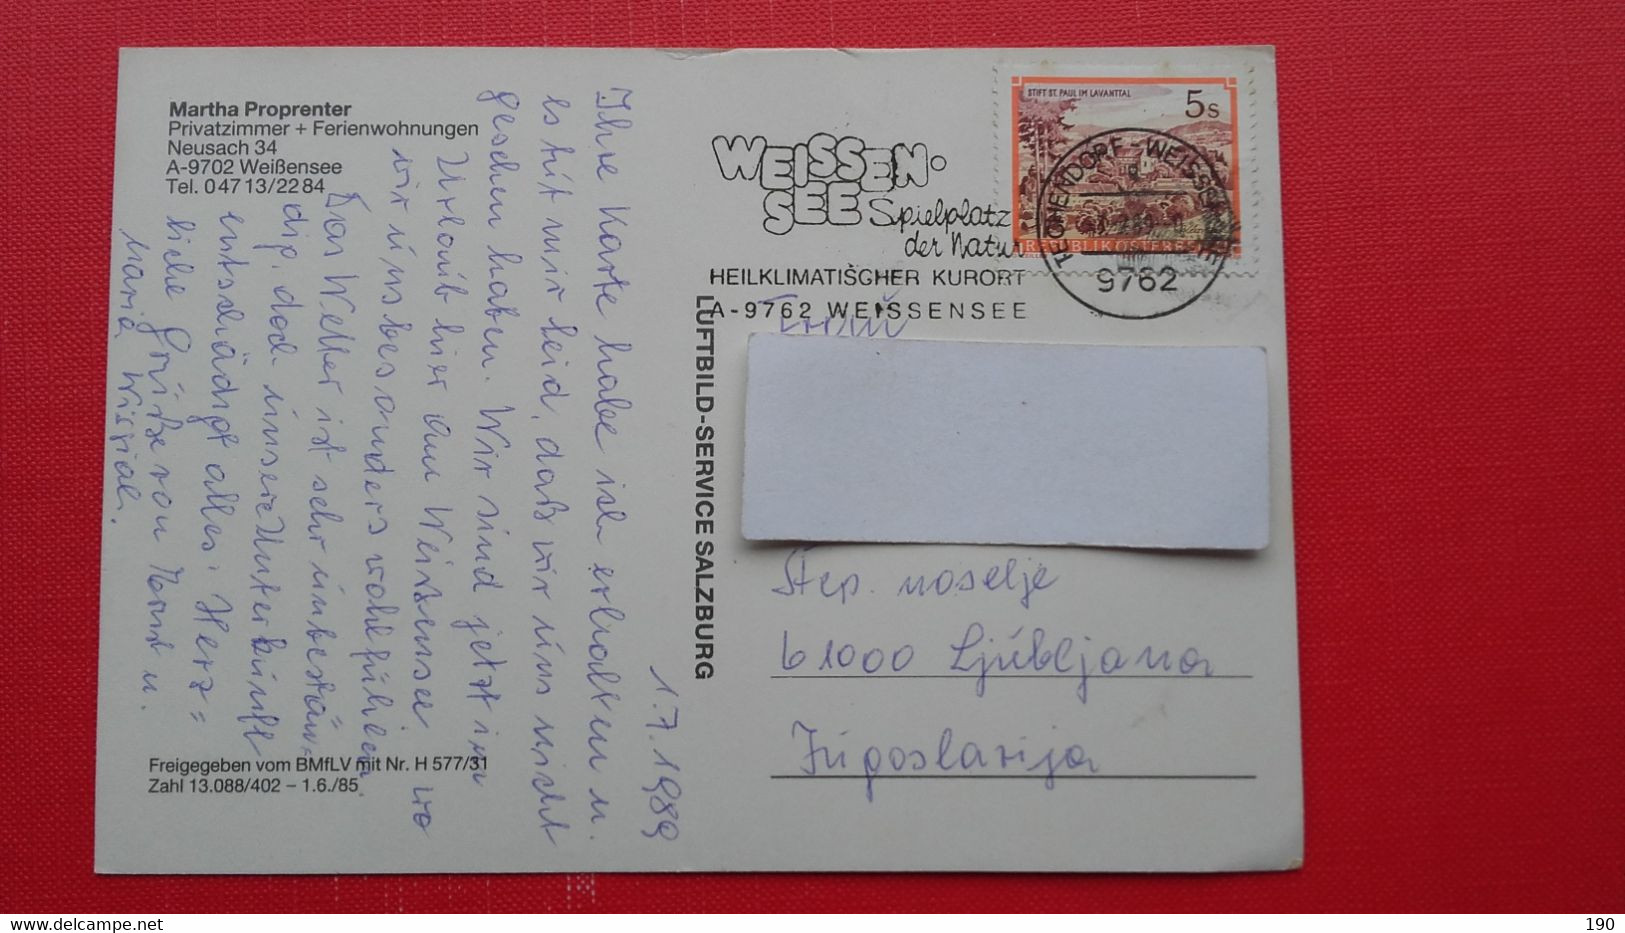 Martha Proprenter
Privatzimmer + Ferienwohnungen
Neusach 34
A-9702 Weißensee
Tel. 0 47 13/22 84
1.7.1989
Ihre Karte habe ich erhalten u.
es tut mir leid, daß wir uns nicht
gesehen haben. Wir sind jetzt im
Urlaub hier am Weissensee wo
wir uns besonders wohlfühlen
Das Wetter ist sehr unbestän=
dig, doch unsere Unterkunft
entschädigt alles. Herz=
liche Grüße von Horst u.
Maria
Freigegeben vom BMfLV mit Nr. H 577/31
Zahl 13.088/402 – 1.6./85
LUFTBILD-SERVICE SALZBURG
WEISSEN-
SEE Spielplatz
der Natur
HEILKLIMATISCHER KURORT
A-9762 WEISSENSEE
STIFT ST. PAUL IM LAVANTTAL
5s
REPUBLIK ÖSTERREICH
TECHENDORF-WEISSENSEE
9762
Step. naselje
61000 Ljubljana
Jugoslavija
190
delcampe.net
marvin